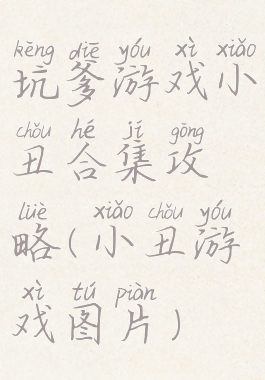 kēng diē yóu xì xiǎo
坑爹游戏小
chǒu hé jí gōng
丑合集攻
lüè xiǎo chǒu yóu
略(小丑游
xì tú piàn
戏图片)